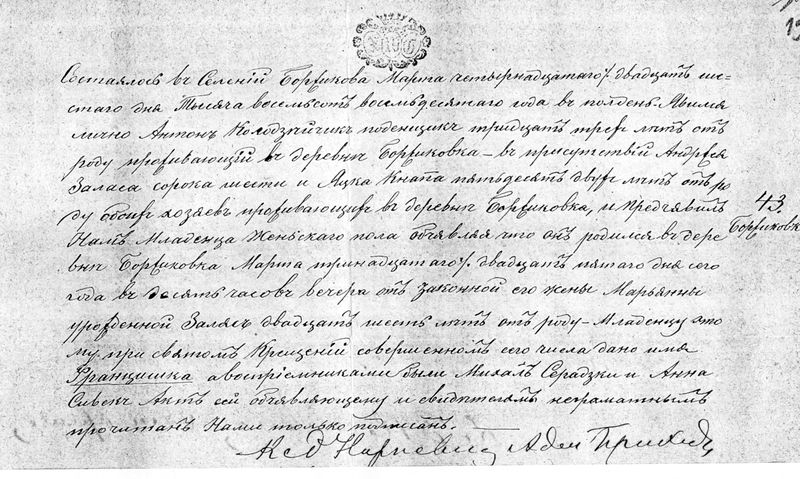 Состоялось въ Селеніи Боржикова Марта четырнадцатаго/ двадцать шес-
стаго дня Тысяча восемьсотъ восемьдесятаго года въ полдень. Явился
лично Антонъ Колодзѣйчикъ поденщикъ тридцать трехъ лѣтъ отъ
роду проживающій въ деревнѣ Боржиковка – въ присутствіи Андрея
Заласа сорока шести и Яцка Кнапа пятьдесятъ двухъ лѣтъ отъ ро
ду обоихъ хозяевъ проживающихъ въ деревнѣ Боржиковка, и предъявилъ
Намъ Младенца Женьскаго пола объявляя что онъ родился въ дере
внѣ Боржиковка Марта тринадцатаго/ двадцать пятаго дня сего
года въ десять часовъ вечера отъ законной его жены Марьянны
урожденной Залясъ двадцать шесть лѣтъ отъ роду – Младенцу это
му при святомъ Крещеніи совершенномъ сего числа дано имя
Францишка а воспріемниками были Михалъ Серадзки и Анна
Сивекъ Актъ сей объявляющему и свидѣтелямъ неграматнымъ
прочитанъ Нами только подписанъ.
43.
Боржиковка